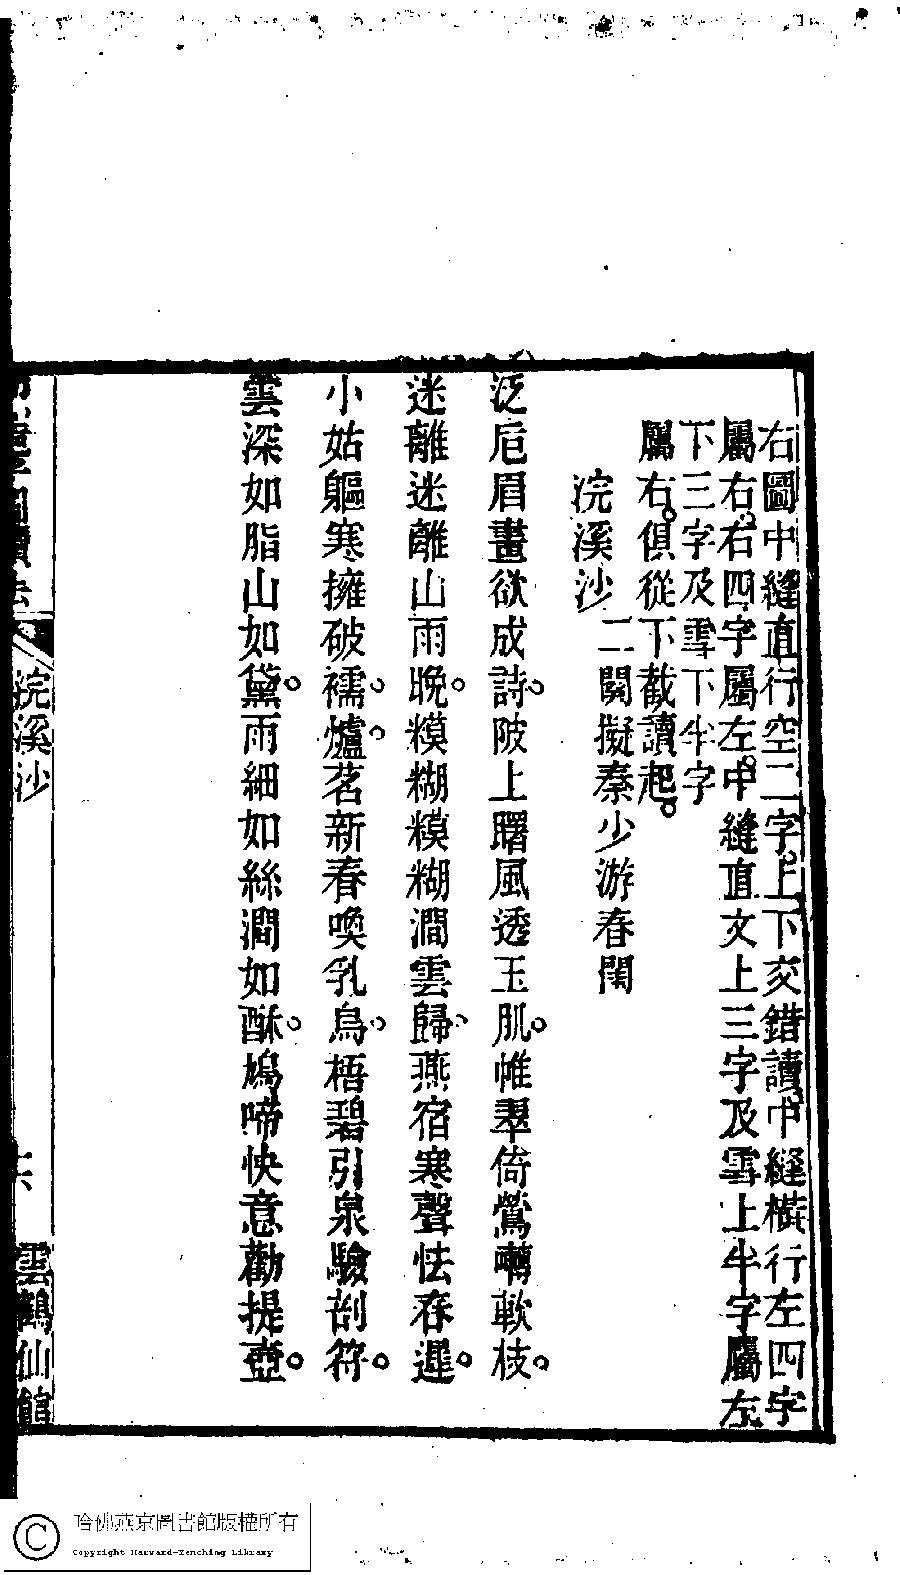 右圖中縫直行空二字上下交錯讀中縫橫行左四字
屬右右四字屬左中縫直文上三字及雲上半字屬左
下三字及雪下半字
屬右俱從下截讀起
浣溪沙
二闋擬秦少游春閨
泛卮眉畫欲成詩陂上曙風透玉肌帷翠倚鶯囀軟枝
迷離迷離山雨晚糢糊糢糊澗雲歸燕宿寒聲怯春遲
小姑軀寒擁破襦爐茗新春喚乳烏梧碧引泉驗剖符
雲深如脂山如黛雨細如絲澗如酥鳩啼快意勸提壺
圖讀法
浣溪沙
雲鶴仙館
哈佛燕京圖書館版權所有
Copyright Harvard-Yenching Library